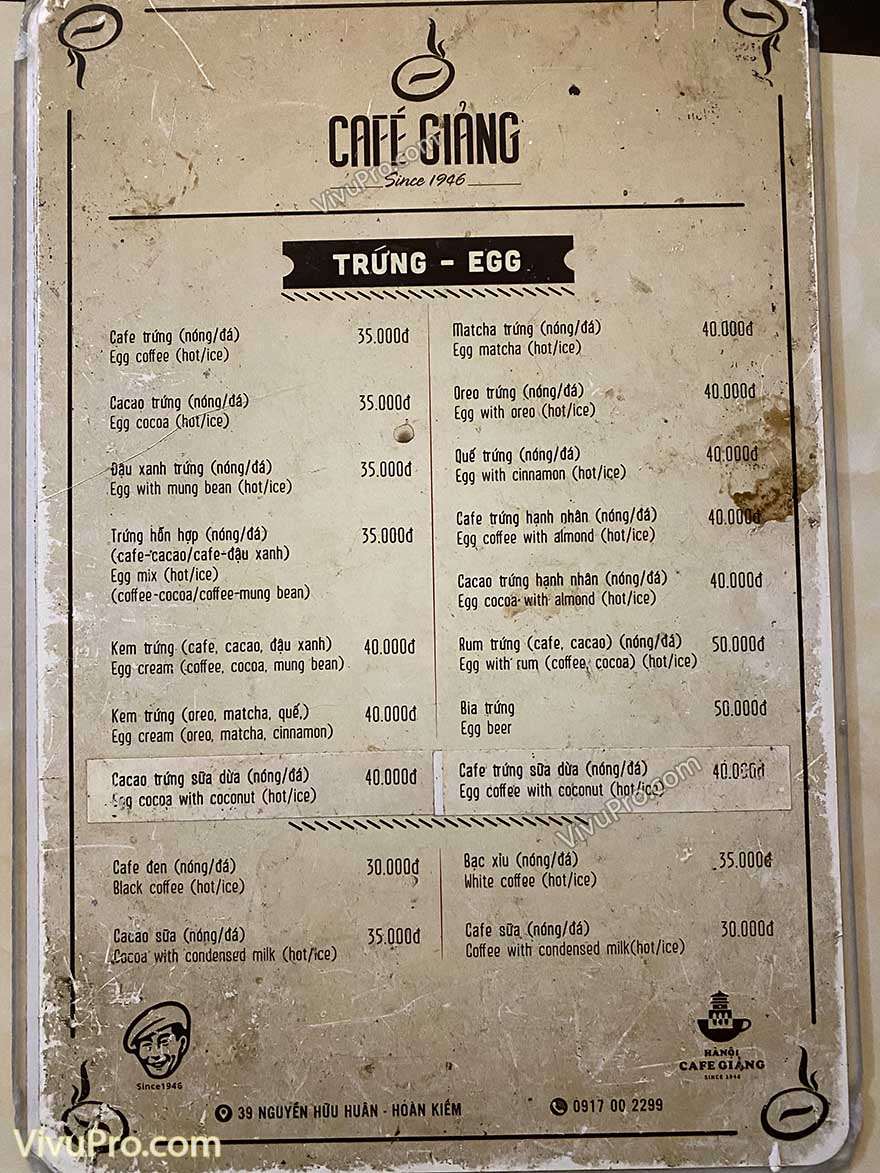 CAFÉ GIẢNG
Since 1946
TRỨNG - EGG
Cafe trứng (nóng/đá) 35.000đ
Egg coffee (hot/ice)
Cacao trứng (nóng/đá) 35.000đ
Egg cocoa (hot/ice)
Đậu xanh trứng (nóng/đá) 35.000đ
Egg with mung bean (hot/ice)
Trứng hỗn hợp (nóng/đá) 35.000đ
(cafe-cacao/cafe-đậu xanh)
Egg mix (hot/ice)
(coffee-cocoa/coffee-mung bean)
Kem trứng (cafe, cacao, đậu xanh) 40.000đ
Egg cream (coffee, cocoa, mung bean)
Kem trứng (oreo, matcha, quế,) 40.000đ
Egg cream (oreo, matcha, cinnamon)
Cacao trứng sữa dừa (nóng/đá) 40.000đ
Egg cocoa with coconut (hot/ice)
Matcha trứng (nóng/đá) 40.000đ
Egg matcha (hot/ice)
Oreo trứng (nóng/đá) 40.000đ
Egg with oreo (hot/ice)
Quế trứng (nóng/đá) 40.000đ
Egg with cinnamon (hot/ice)
Cafe trứng hạnh nhân (nóng/đá) 40.000đ
Egg coffee with almond (hot/ice)
Cacao trứng hạnh nhân (nóng/đá) 40.000đ
Egg cocoa with almond (hot/ice)
Rum trứng (cafe, cacao) (nóng/đá) 50.000đ
Egg with rum (coffee, cocoa) (hot/ice)
Bia trứng 50.000đ
Egg beer
Cafe trứng sữa dừa (nóng/đá) 40.000đ
Egg coffee with coconut (hot/ice)
Cafe đen (nóng/đá) 30.000đ
Black coffee (hot/ice)
Cacao sữa (nóng/đá) 35.000đ
Cocoa with condensed milk (hot/ice)
Bạc xỉu (nóng/đá) 35.000đ
White coffee (hot/ice)
Cafe sữa (nóng/đá) 30.000đ
Coffee with condensed milk(hot/ice)
Since1946
HÀNỘI
CAFE GIẢNG
SINCE 1946
39 NGUYỄN HỮU HUÂN - HOÀN KIẾM
0917 00 2299
VivuPro.com
VivuPro.com
VivuPro.com